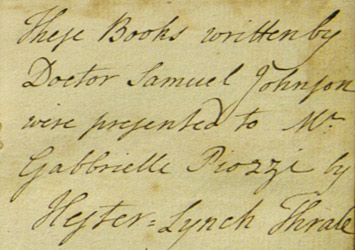 These Books written by
Doctor Samuel Johnson
were presented to Mr.
Gabbrielle Piozzi by
Hester=Lynch Thrale